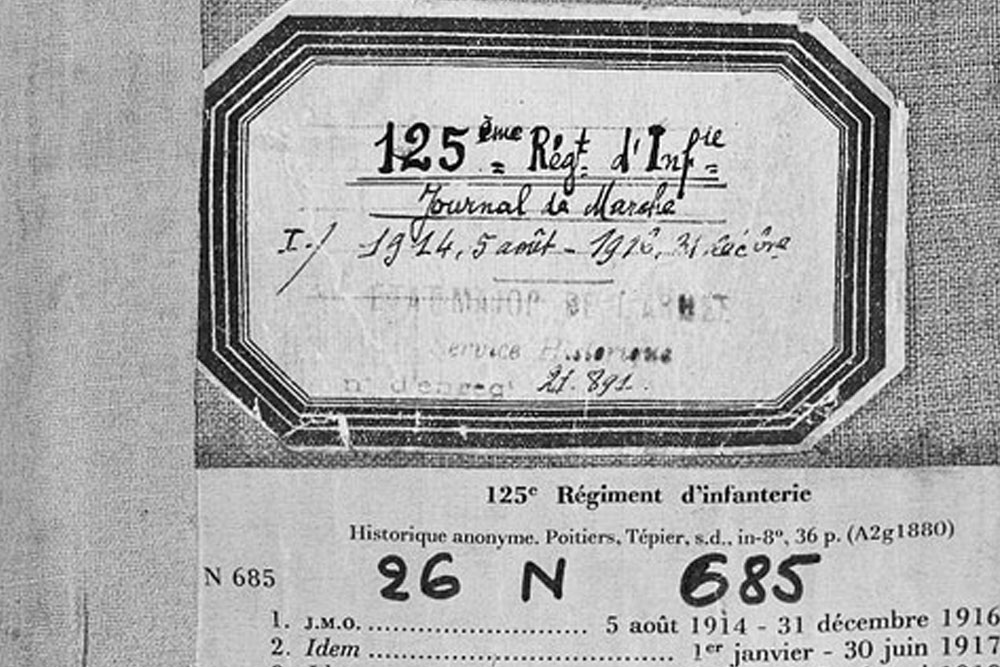 125 ème Régt d'Infie
Journal de Marche
I./ 1914, 5 août - 1916, 31 décbre
Service Historique
n° d'enregt 21.891.
125e Régiment d'infanterie
Historique anonyme. Poitiers, Tépier, s.d., in-8°, 36 p. (A2g1880)
N 685 26 N 685
1. J.M.O. .............................. 5 août 1914 - 31 décembre 1916
2. Idem .................................... 1er janvier - 30 juin 1917